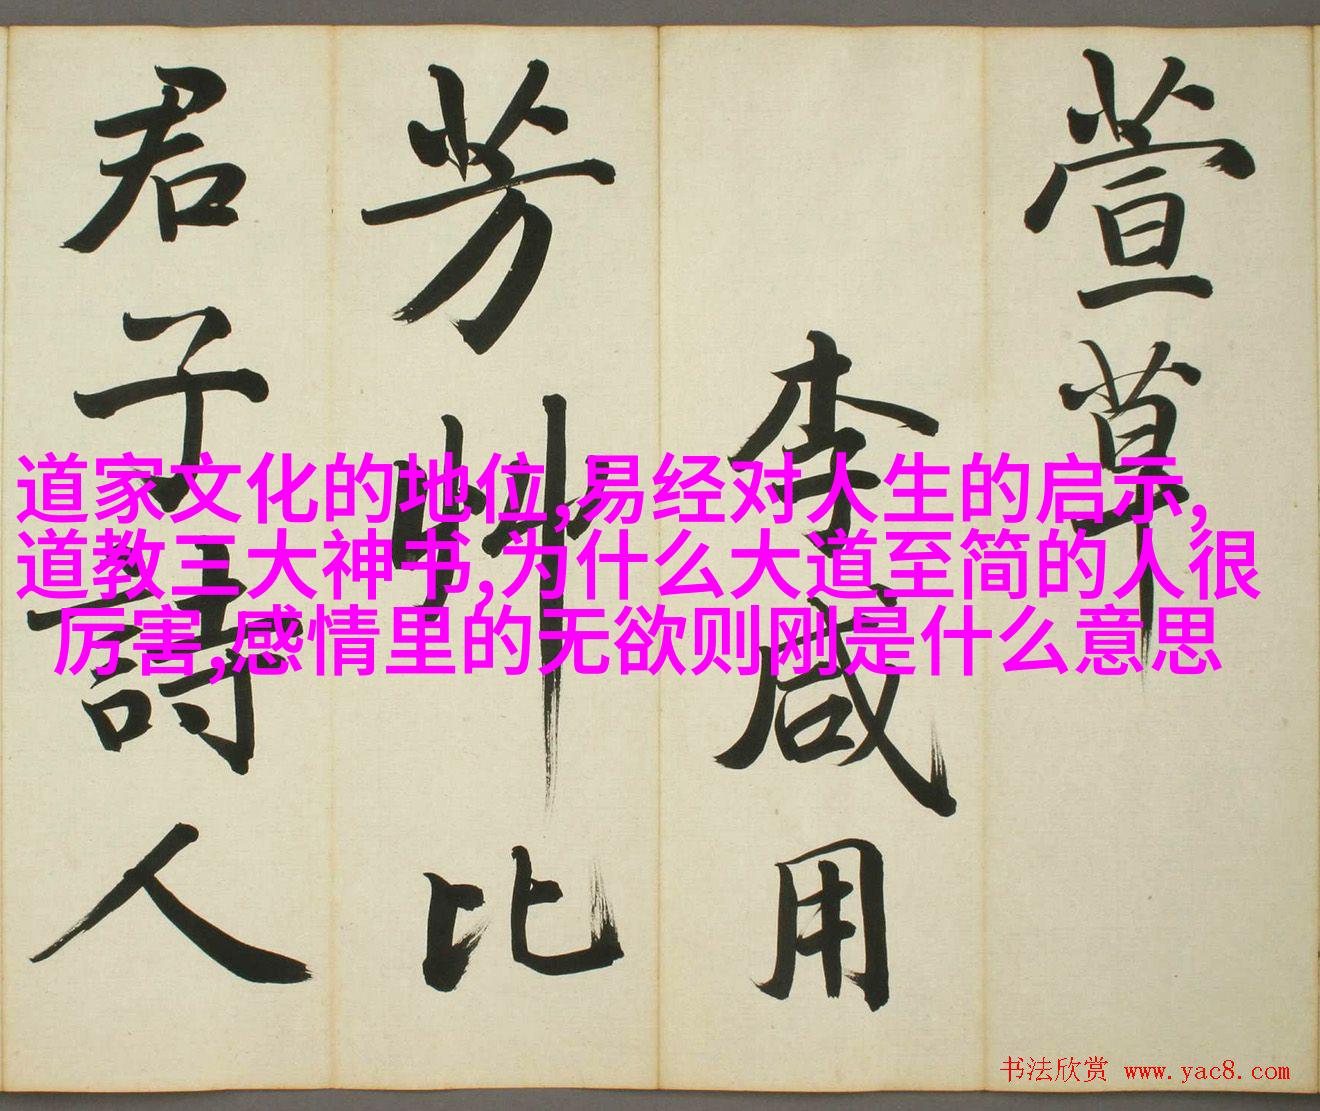 萱草
李咸用
芳艸比
君子詩人
道家文化的地位,易经对人生的启示,
道教三大神书,为什么大道至简的人很
厉害,感情里的无欲则刚是什么意思
书法欣赏 www.yac8.com